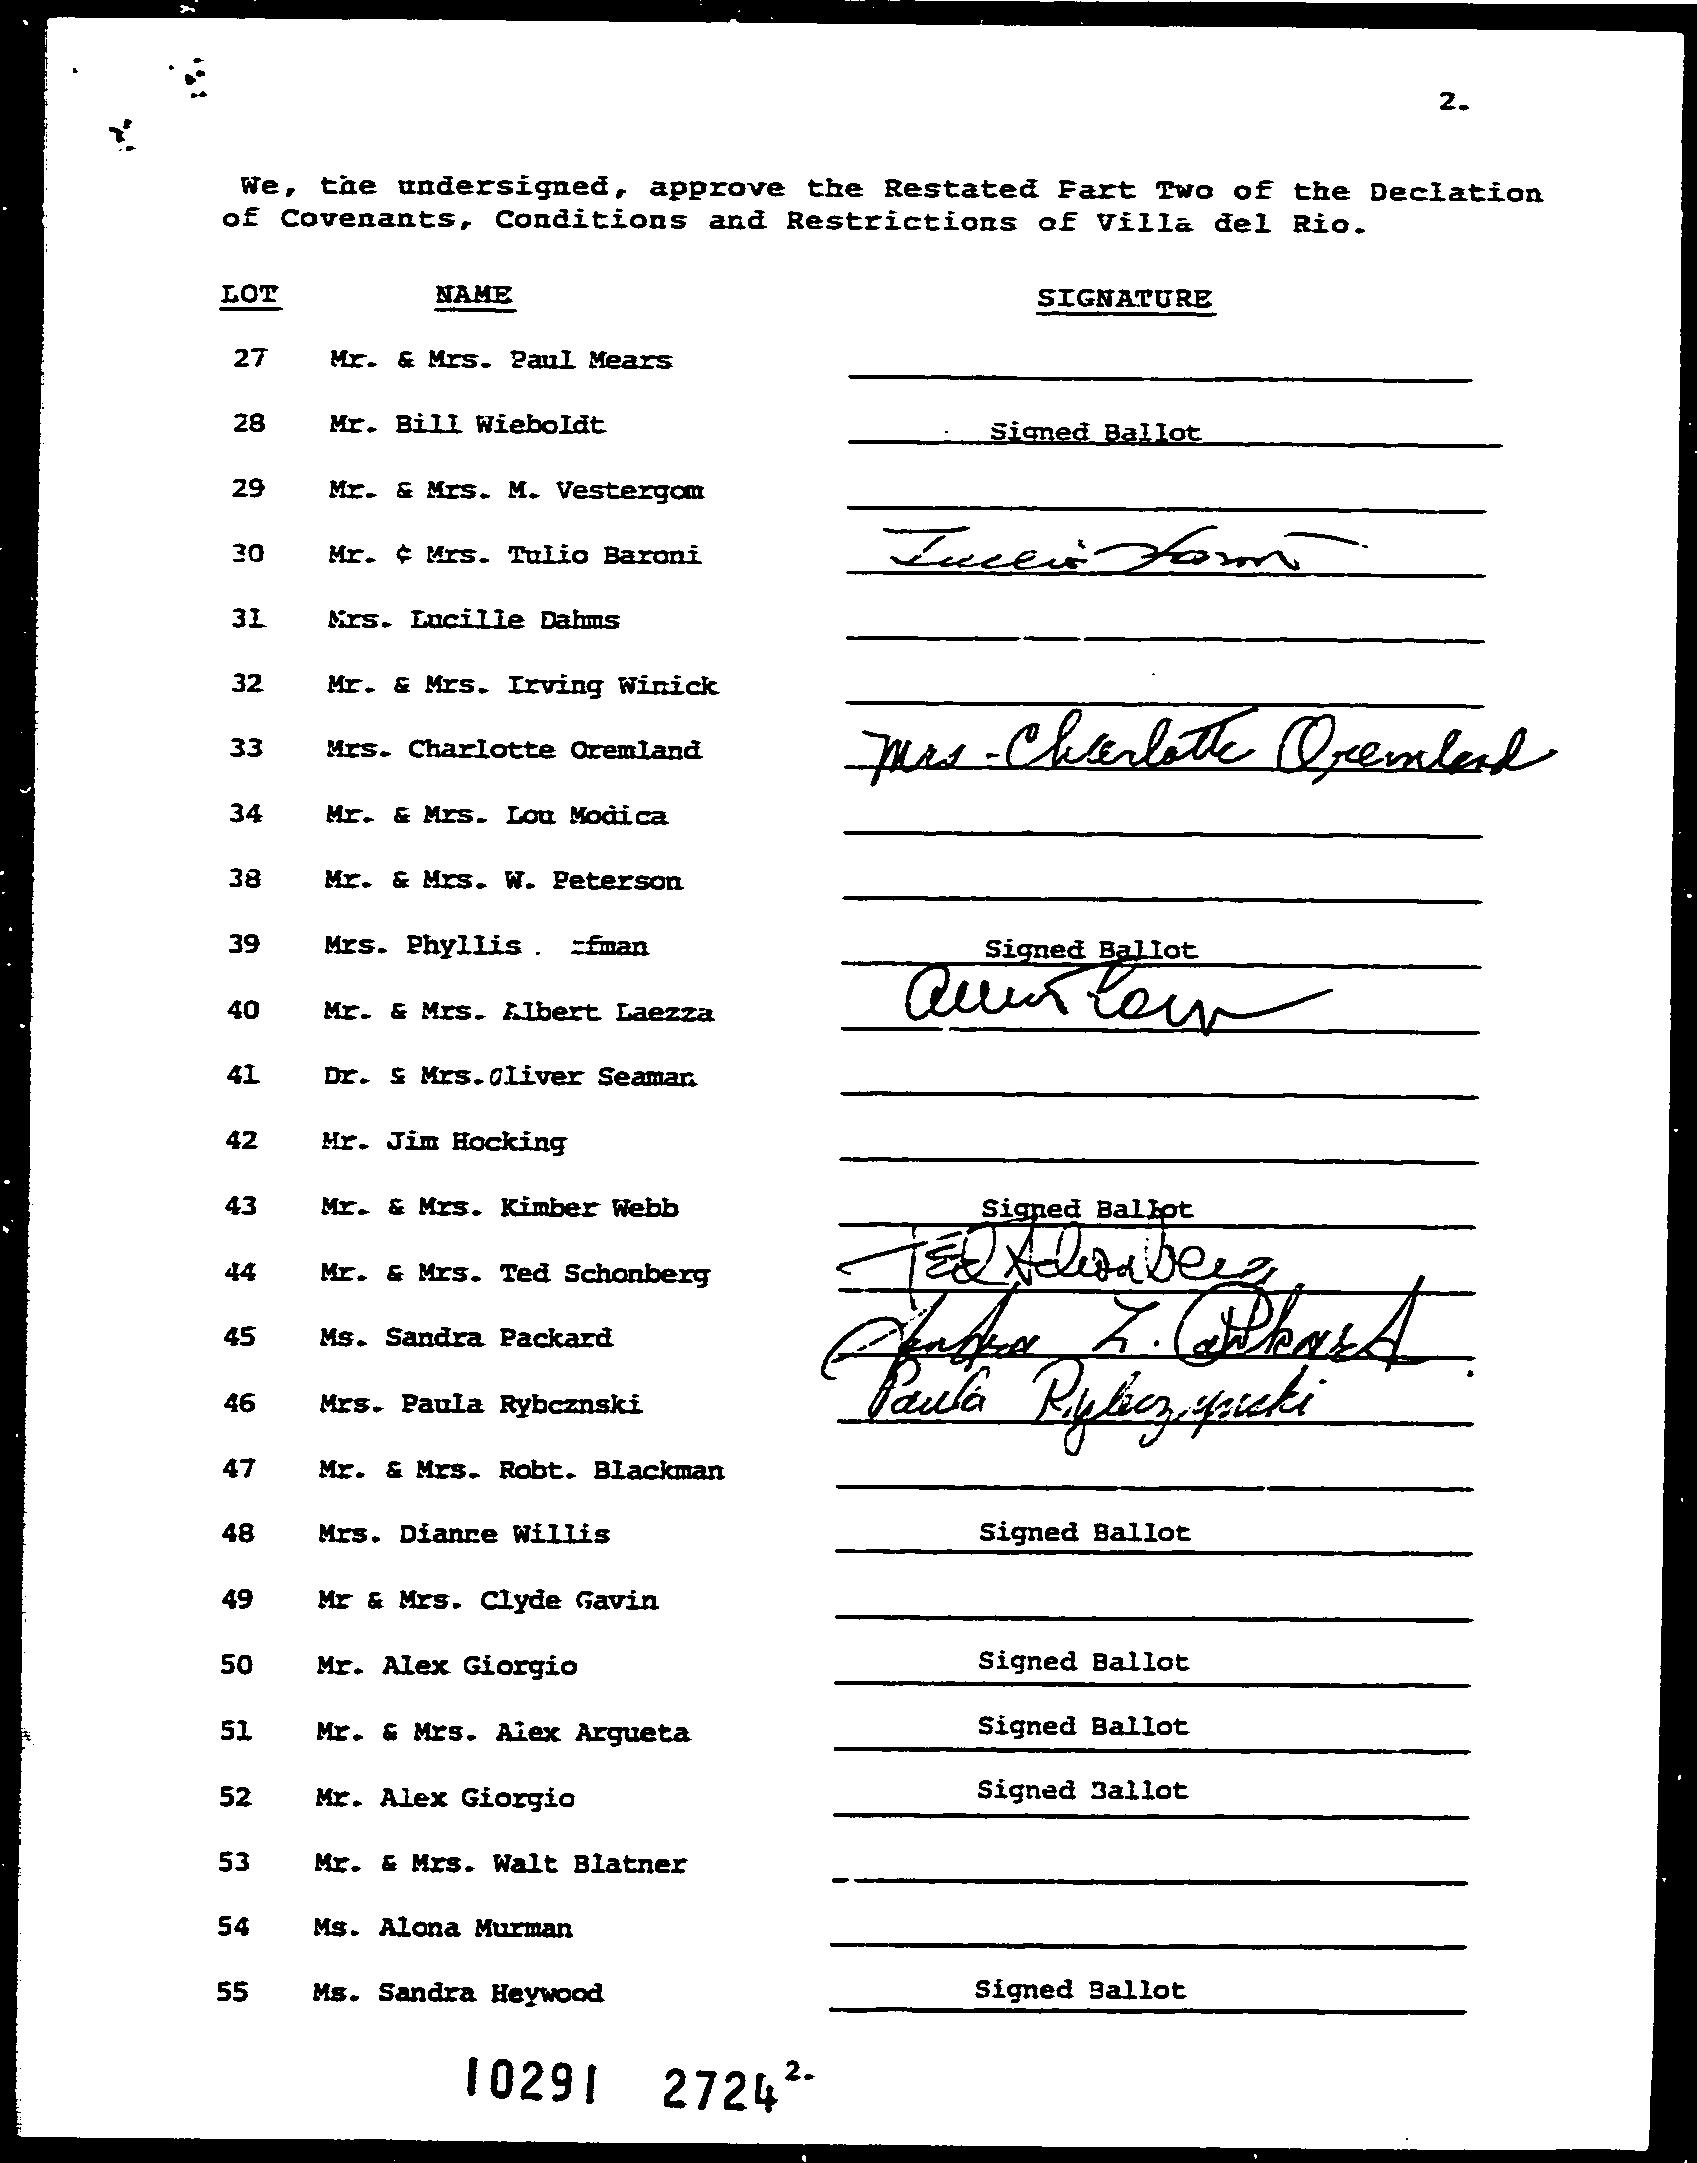 2.
We, the undersigned, approve the Restated Part Two of the Declation
of Covenants, Conditions and Restrictions of Villa del Rio.
LOT NAME SIGNATURE
27 Mr. & Mrs. Paul Mears
28 Mr. Bill Wieboldt Signed Ballot
29 Mr. & Mrs. M. Vestergom
30 Mr. ¢ Mrs. Tulio Baroni
31 Mrs. Lucille Dahms
32 Mr. & Mrs. Irving Winick
33 Mrs. Charlotte Oremland Mrs - Charlotte Oremland
34 Mr. & Mrs. Lou Modica
38 Mr. & Mrs. W. Peterson
39 Mrs. Phyllis Signed Ballot
40 Mr. & Mrs. Albert Laezza
41 Dr. & Mrs. Oliver Seaman
42 Mr. Jim Hocking
43 Mr. & Mrs. Kimber Webb Signed Ballot
44 Mr. & Mrs. Ted Schonberg Ted Schonberg
45 Ms. Sandra Packard Sandra Z. Packard
46 Mrs. Paula Rybcznski Paula Rybczynski
47 Mr. & Mrs. Robt. Blackman
48 Mrs. Dianne Willis Signed Ballot
49 Mr & Mrs. Clyde Gavin
50 Mr. Alex Giorgio Signed Ballot
51 Mr. & Mrs. Alex Argueta Signed Ballot
52 Mr. Alex Giorgio Signed Ballot
53 Mr. & Mrs. Walt Blatner
54 Ms. Alona Murman
55 Ms. Sandra Heywood Signed Ballot
10291 2724 2.